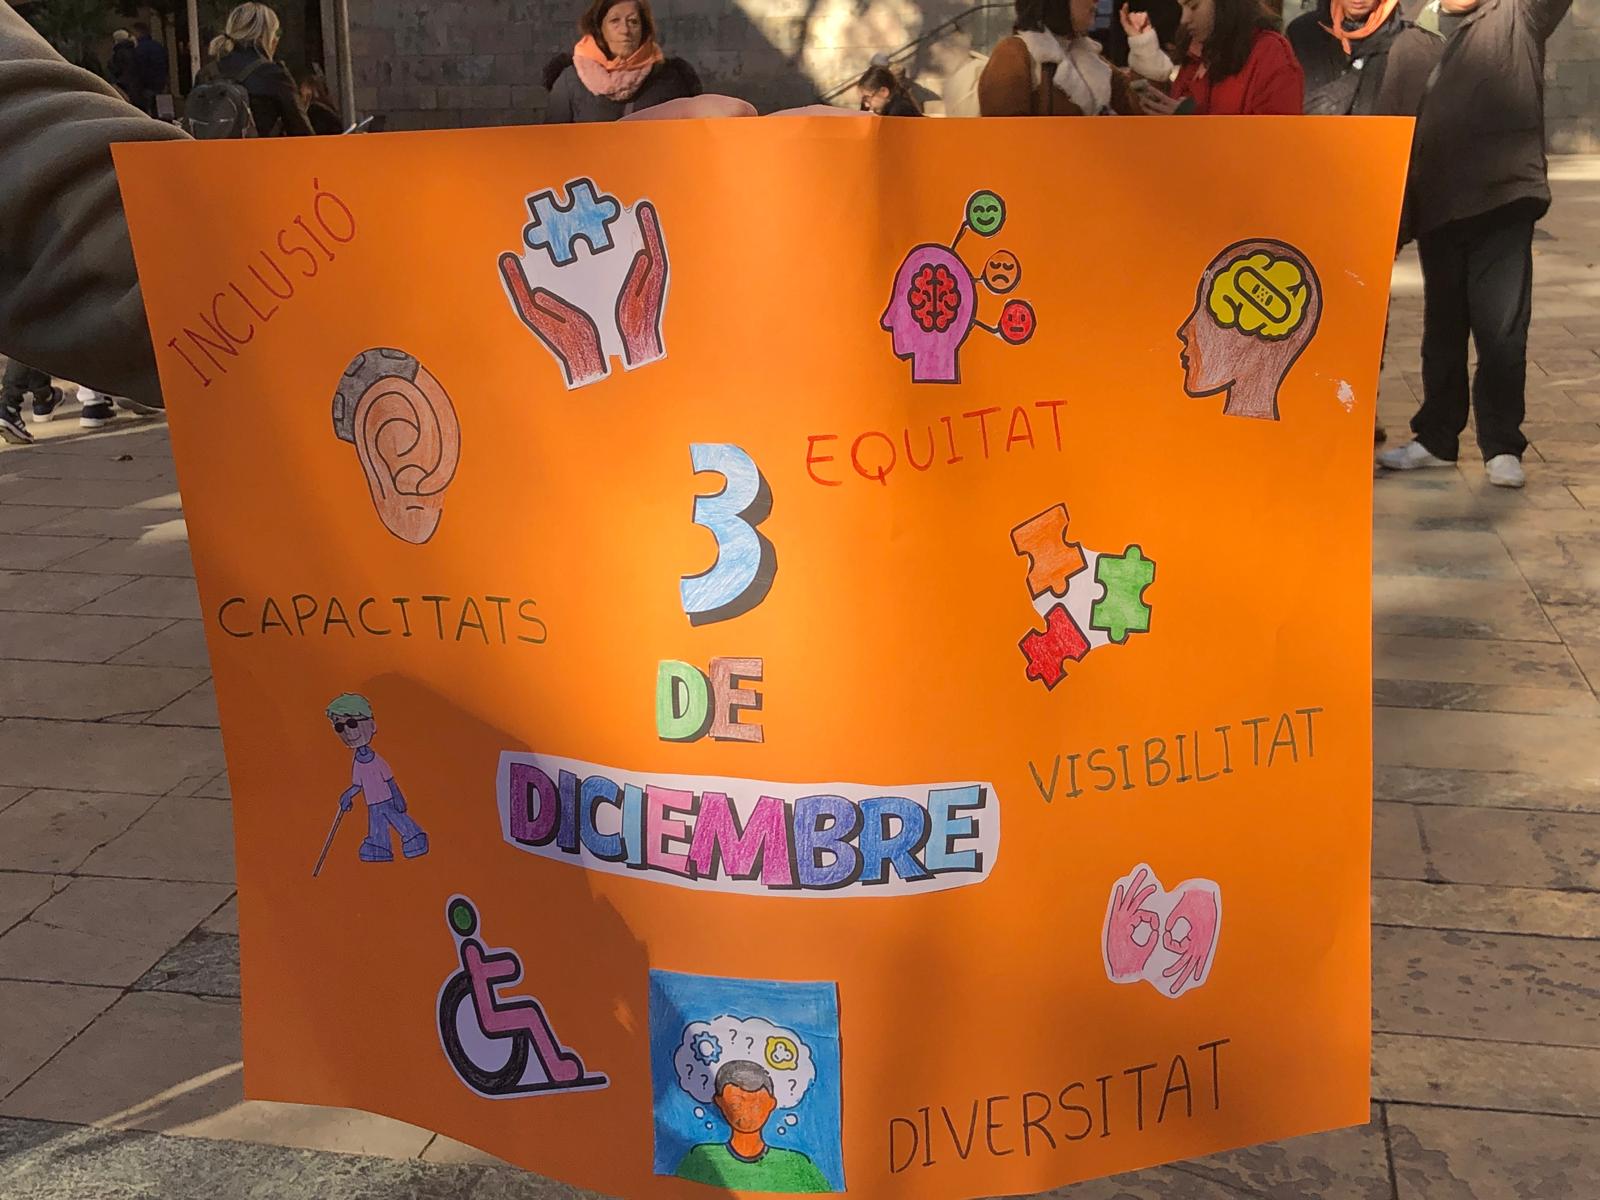 INCLUSIÓ
EQUITAT
3
CAPACITATS
DE
VISIBILITAT
DICIEMBRE
? ?
? ? ?
DIVERSITAT